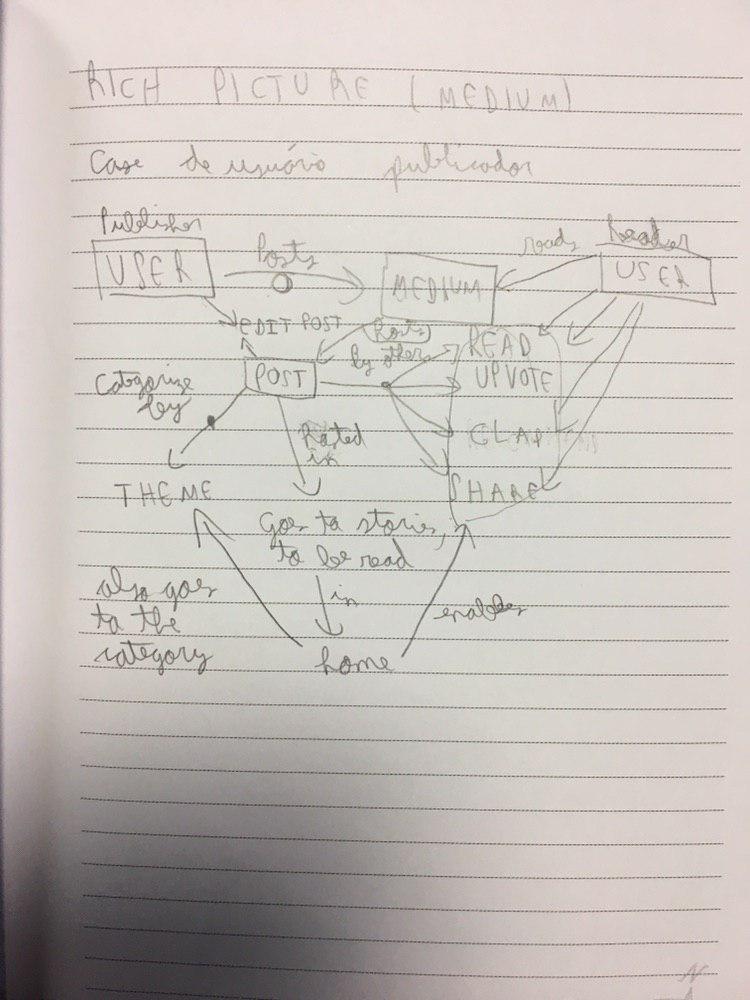 RICH PICTURE (MEDIUM)
Case de usuário publicador
Publisher
USER
Posts
MEDIUM
reads
Reader
USER
EDIT POST
Posts
by others
READ
UPVOTE
CLAP
SHARE
POST
Categorize
by
THEME
Rated
in
Goes to stories,
to be read
in
home
also goes
to the
category
enables